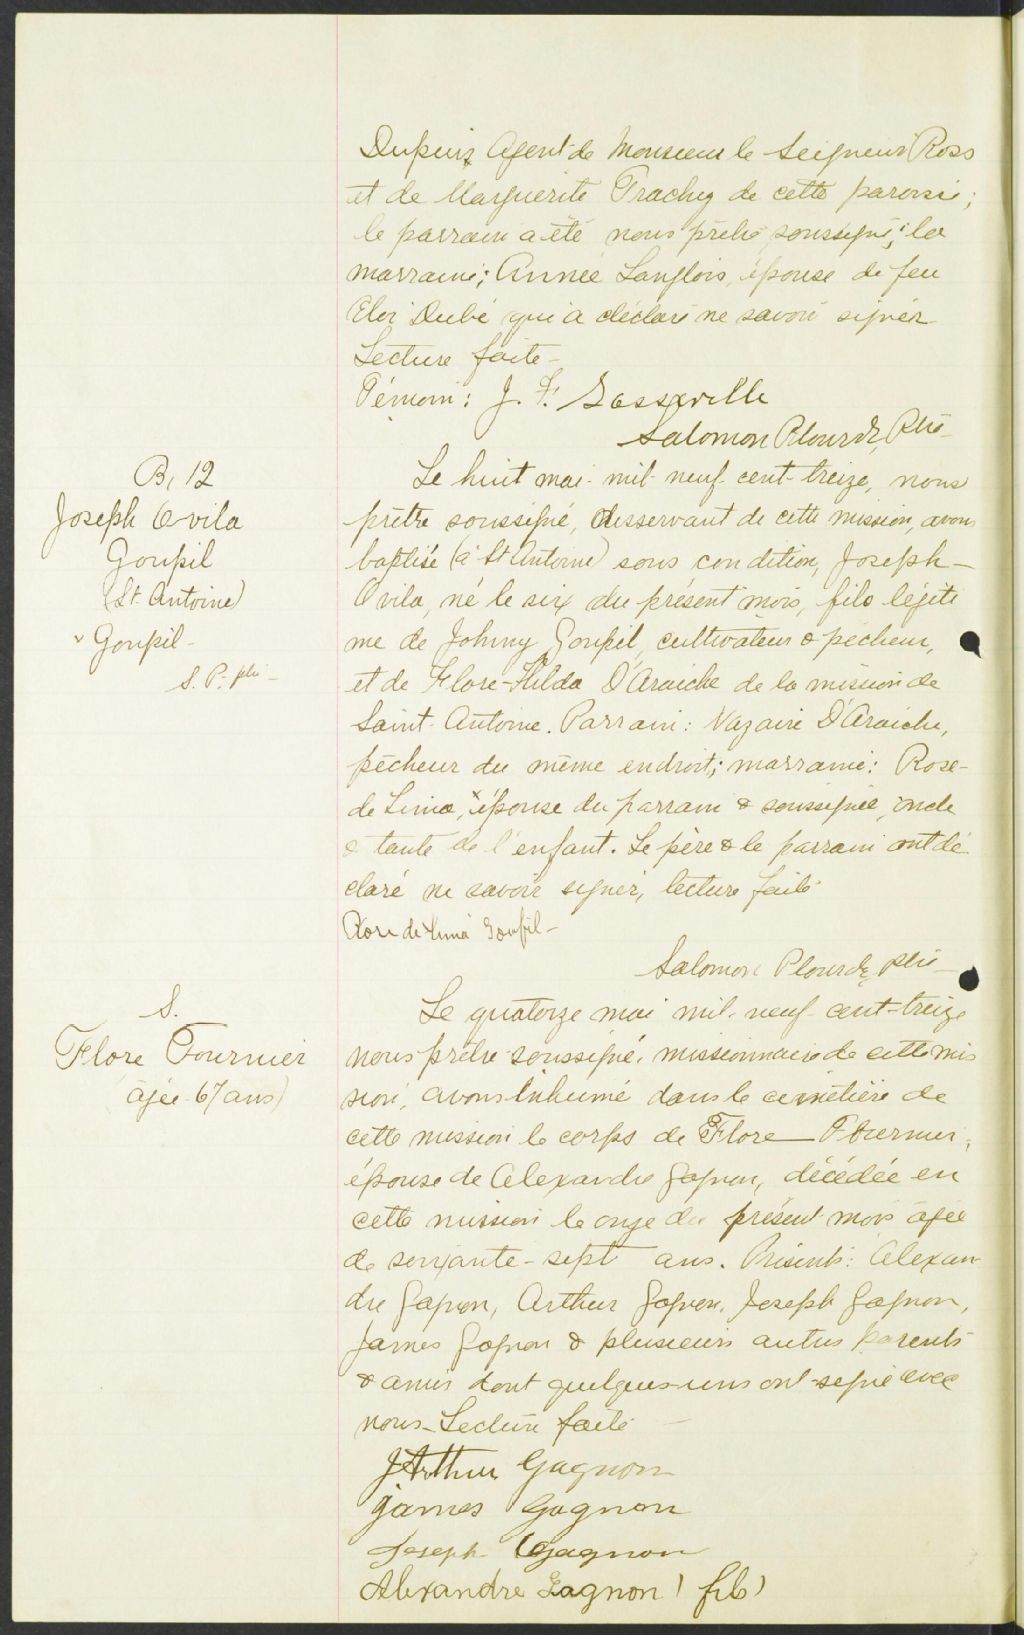 Dupuis Agent de Monsieur le Seigneur Ross
et de Marguerite Trachy de cette paroisse;
le parrain a été nous prêtre soussigné; la
marraine; Année Langlois, épouse de feu
Eloi Dubé qui a déclaré ne savoir signer
Lecture faite -
Témoin: J. F.
Salomon Plourde, Ptre
B, 12
Joseph Ovila
Goupil
(St. Antoine)
v Goupil -
S. P. ptre -
Le huit mai mil neuf cent-treize, nous
prêtre soussigné, desservant de cette mission, avons
baptisé (à St Antoine) sous condition, Joseph -
Ovila, né le six du présent mois, fils légiti
me de Johnny Goupil, cultivateur & pêcheur,
et de Flore-Hilda D'Araiche de la mission de
Saint-Antoine. Parrain: Nazaire D'Araiche,
pêcheur du même endroit; marraine: Rose-
de Lima, x épouse du parrain & soussignée, oncle
& tante de l'enfant. Le père & le parrain ont dé
claré ne savoir signer, lecture faite
Rose de Lima Goupil -
Salomon Plourde, ptre
S.
Flore Fournier
(âgée 67 ans)
Le quatorze mai mil neuf cent-treize
nous prêtre soussigné, missionnaire de cette mis
sion, avons inhumé dans le cimetière de
cette mission le corps de Flore Fournier,
épouse de Alexandre Gagnon, décédée en
cette mission le onze du présent mois âgée
de soixante-sept ans. Présents: Alexan
dre Gagnon, Arthur Gagnon, Joseph Gagnon,
James Gagnon & plusieurs autres parents
& amis dont quelques-uns ont signé avec
nous - Lecture faite -
J Arthur Gagnon
james Gagnon
Joseph Gagnon
Alexandre Gagnon (fils)